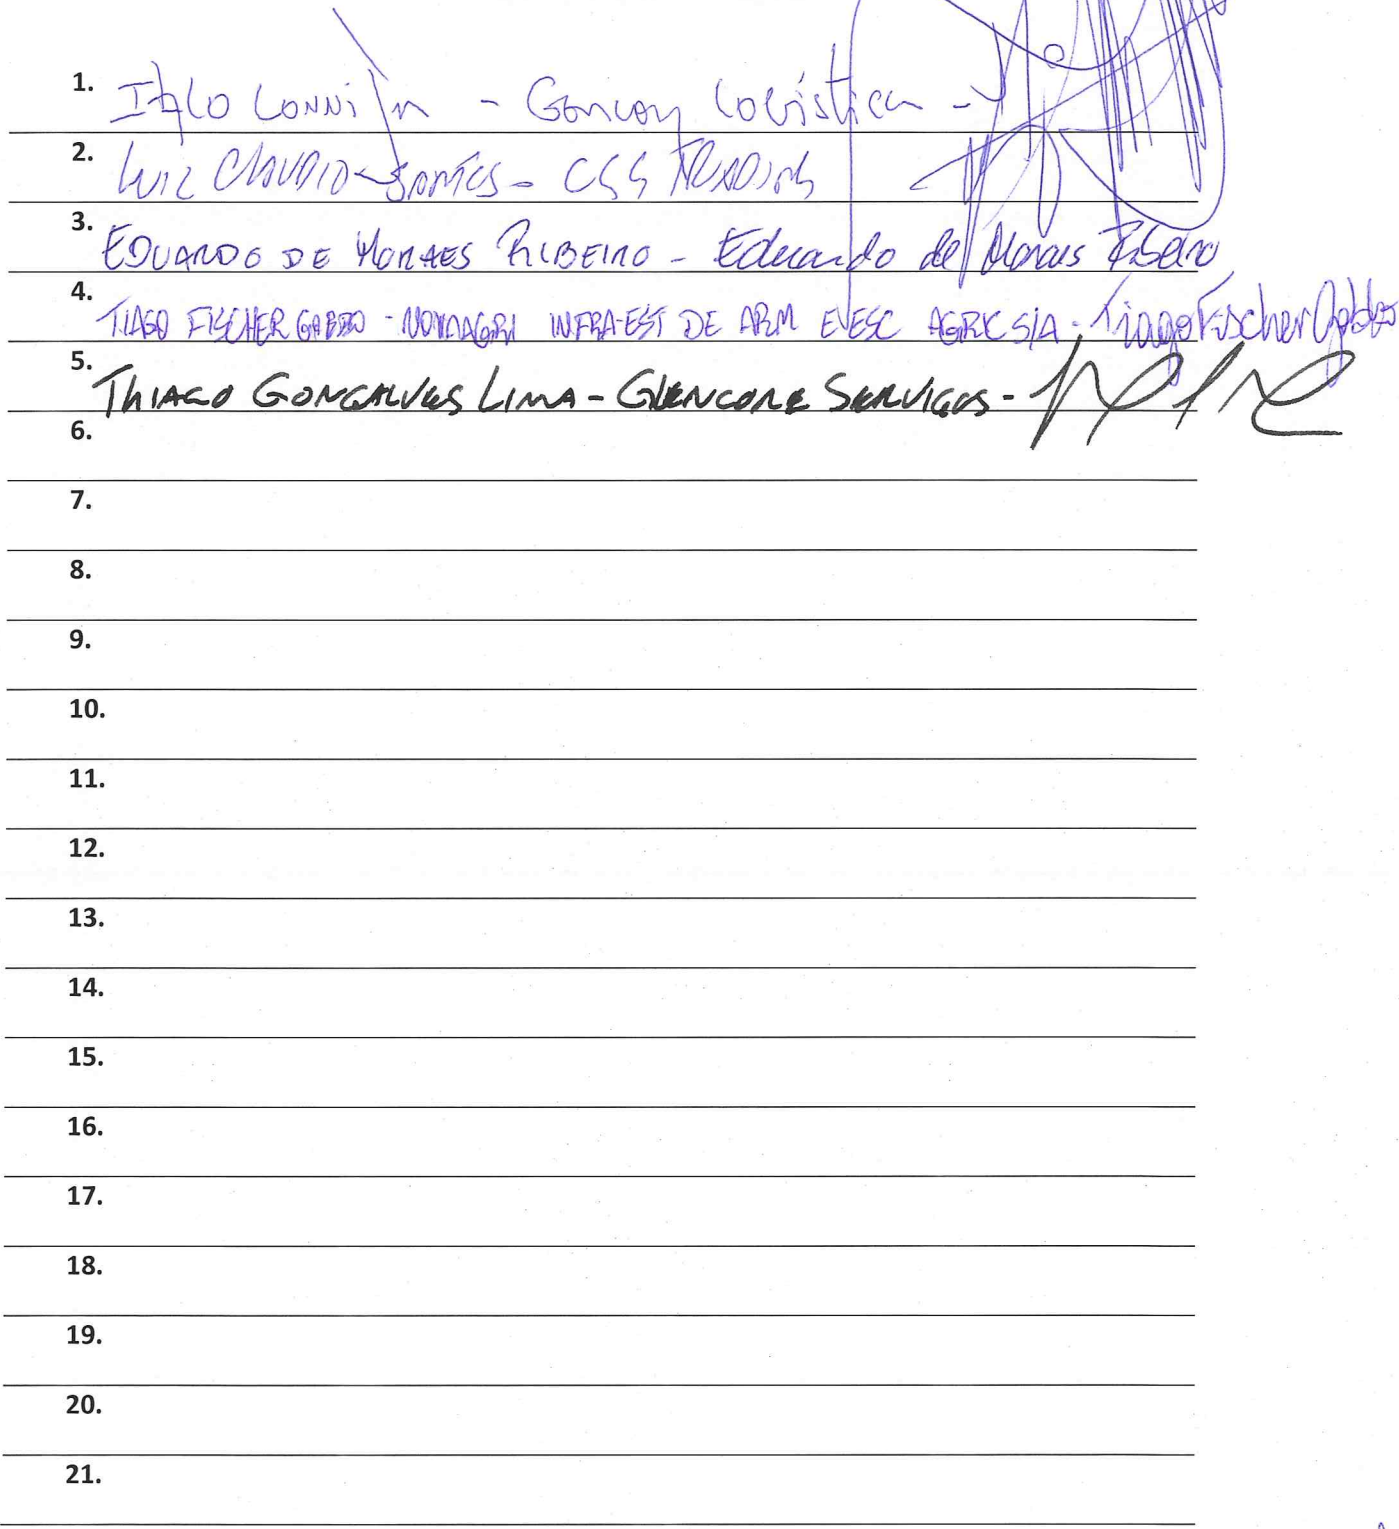 1. Italo - Logística -
2. Luiz Claudio Santos - CSS Trading
3. EDUARDO DE MORAES RIBEIRO - Eduardo de Moraes Ribeiro
4. TIAGO FISCHER GABBO - NOVAAGRI INFRA-EST DE ARM E ESC AGRIC S/A - Tiago Fischer Gabbo
5. THIAGO GONÇALVES LIMA - GLENCORE SERVIÇOS -
6.
7.
8.
9.
10.
11.
12.
13.
14.
15.
16.
17.
18.
19.
20.
21.